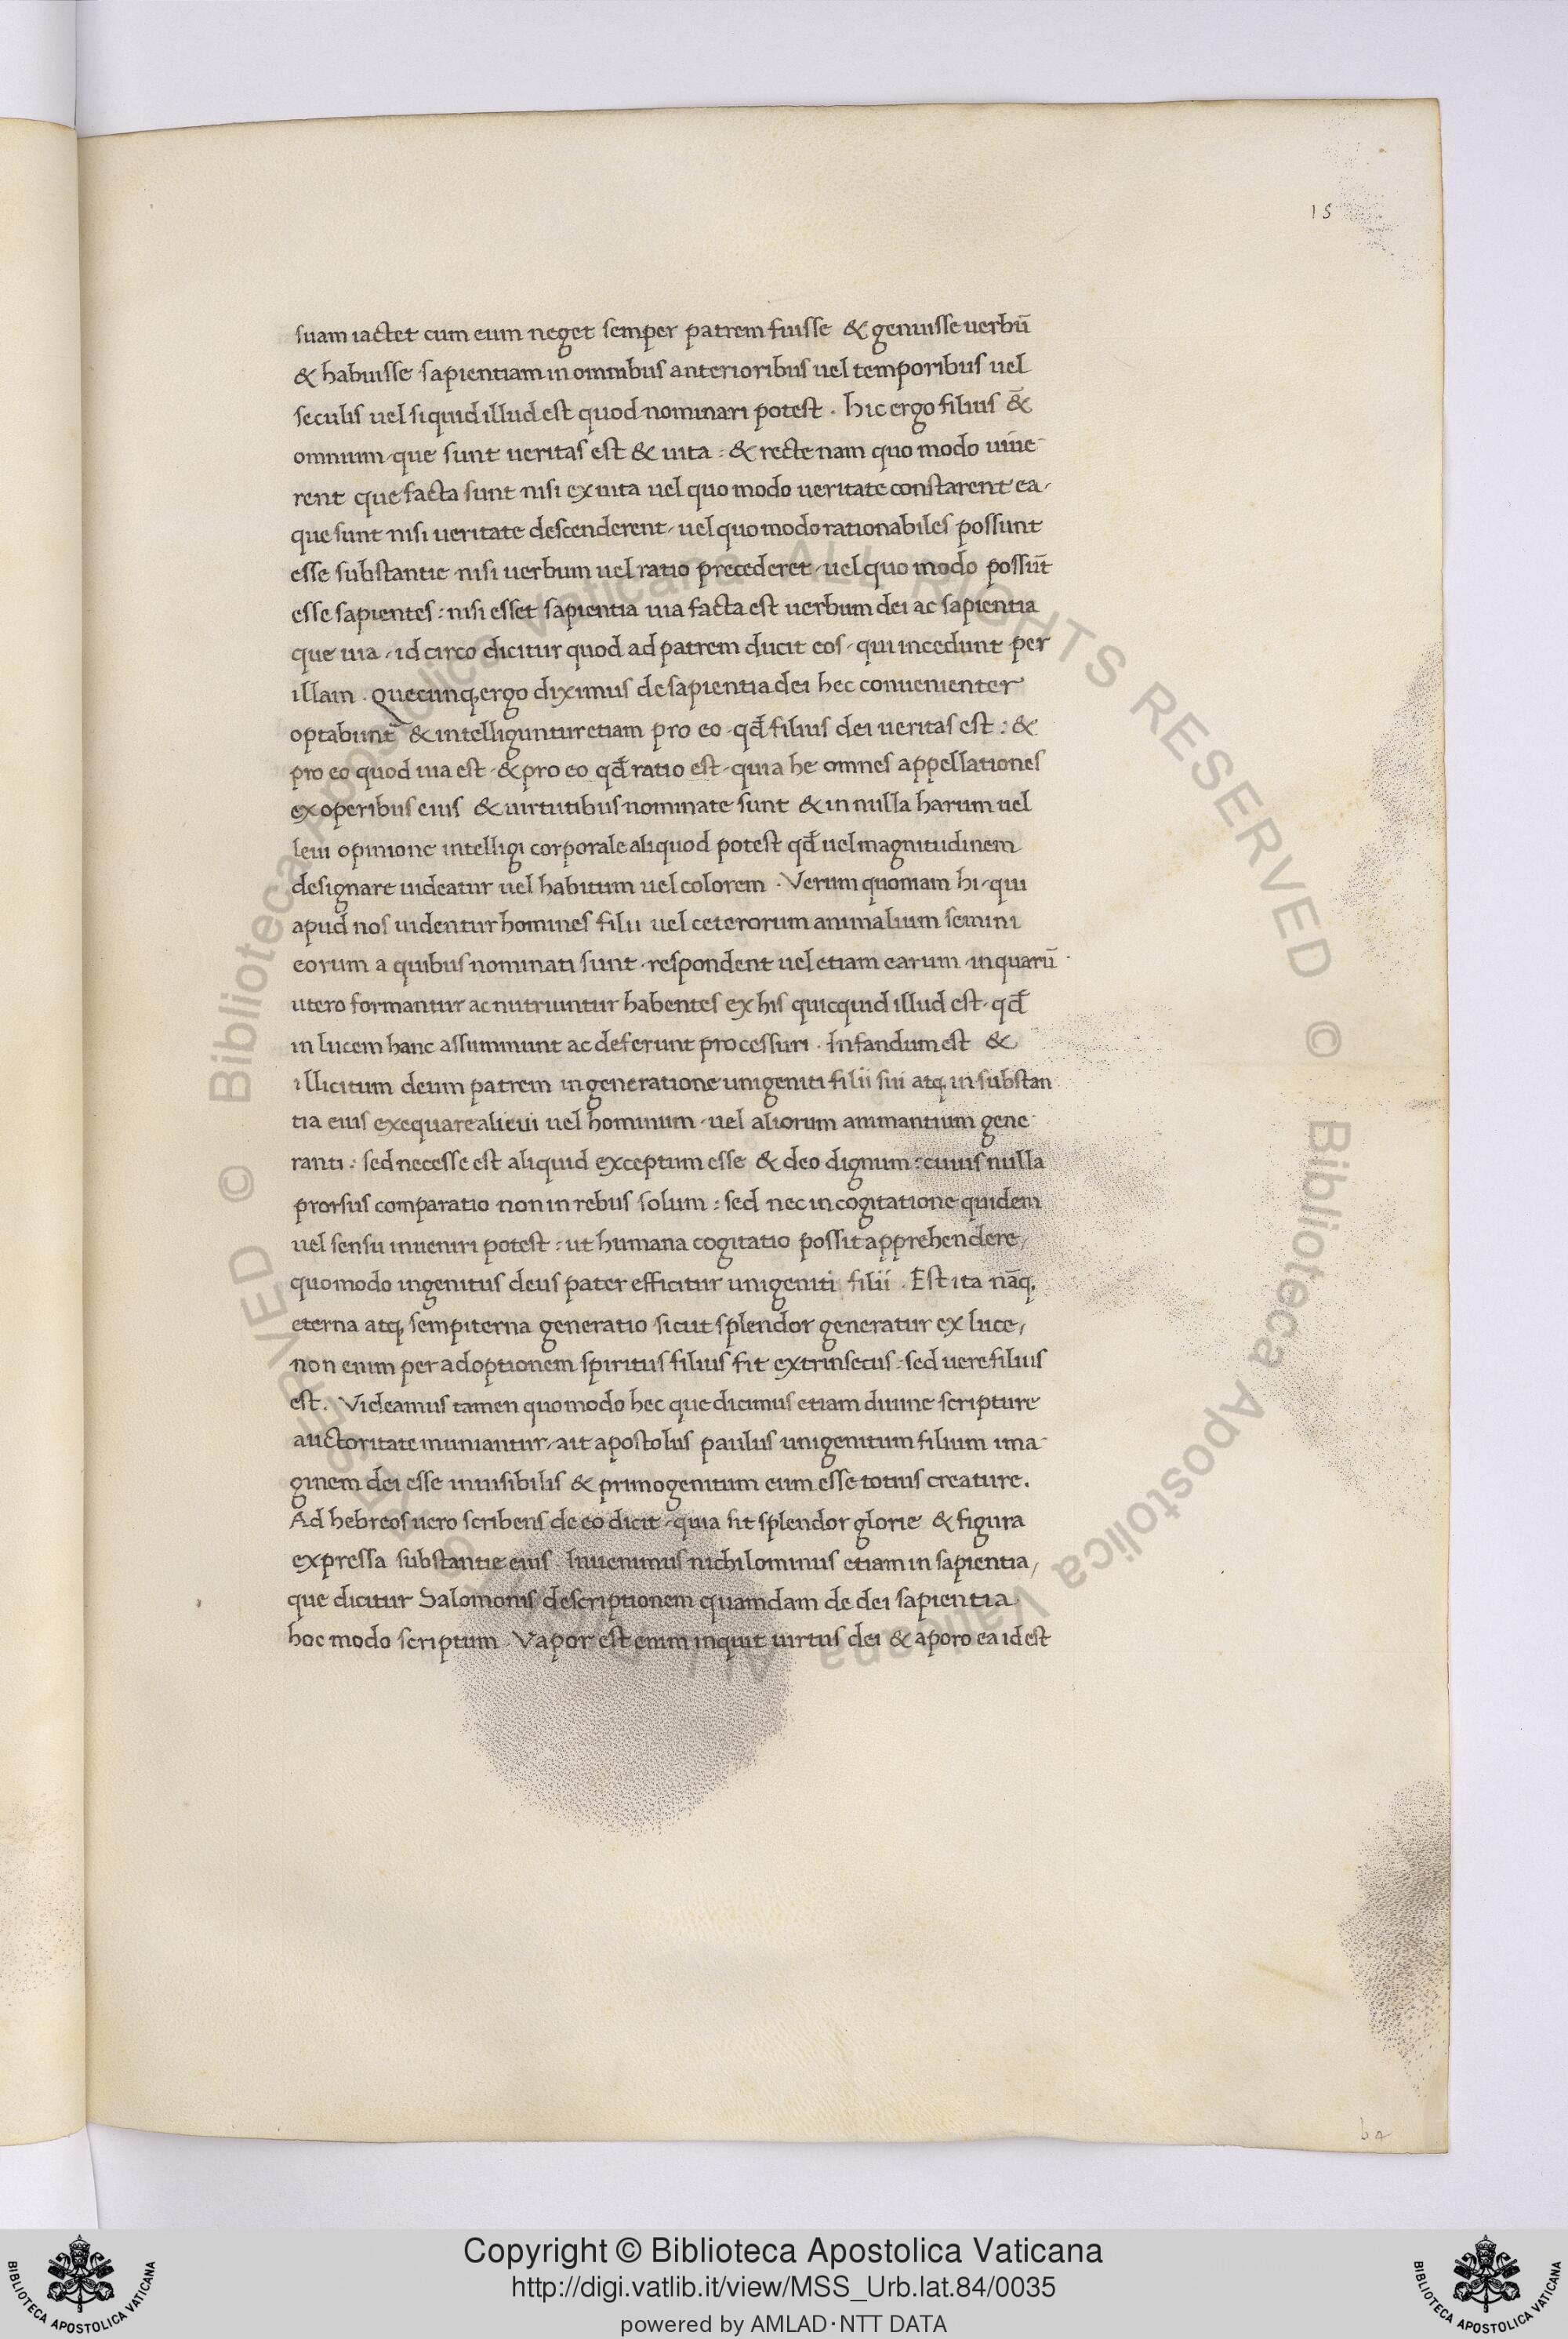 15
suam iactet cum eum neget semper patrem fuisse & genuisse uerbū
& habuisse sapientiam in omnibus anterioribus uel temporibus uel
seculis uel siquid illud est quod nominari potest . hic ergo filius &̄
omnium que sunt ueritas est & uita : & recte nam quo modo uiue-
rent que facta sunt nisi ex uita uel quo modo ueritate constarent ea /
que sunt nisi ueritate descenderent / uel quo modo rationabiles possunt
esse substantie nisi uerbum uel ratio precederet / uel quo modo possūt
esse sapientes : nisi esset sapientia uia facta est uerbum dei ac sapientia
que uia / id circo dicitur quod ad patrem ducit eos / qui incedunt per
illam . Quecunq; ergo diximus de sapientia dei hec conuenienter
optabunt̄ & intelliguntur etiam pro eo qđ filius dei ueritas est : &
pro eo quod uia est / & pro eo qđ ratio est / quia he omnes appellationes
ex operibus eius & uirtutibus nominate sunt & in nulla harum uel
leui opinione intelligi corporale aliquod potest qđ uel magnitudinem
designare uideatur uel habitum uel colorem . Verum quoniam hi / qui
apud nos uidentur homines filii uel ceterorum animalium semini
eorum a quibus nominati sunt respondent uel etiam earum in quarū
utero formantur ac nutriuntur habentes ex his quicquid illud est / qđ
in lucem hanc assummunt ac deferunt processuri . Infandum est &
illicitum deum patrem in generatione unigeniti filii sui atq; in substan
tia eius exequare alicui uel hominum / uel aliorum animantium gene
ranti : sed necesse est aliquid exceptum esse & deo dignum : cuius nulla
prorsus comparatio non in rebus solum : sed nec in cogitatione quidem
uel sensu inueniri potest : ut humana cogitatio possit apprehendere /
quomodo ingenitus deus pater efficitur unigeniti filii . Est ita nāq;
eterna atq; sempiterna generatio sicut splendor generatur ex luce /
non enim per adoptionem spiritus filius fit extrinsecus : sed uere filius
est . Videamus tamen quomodo hec que dicimus etiam diuine scripture
auctoritate muniantur / ait apostolus paulus unigenitum filium ima-
ginem dei esse inuisibilis & primogenitum eum esse totius creature .
Ad hebreos uero scribens de eo dicit / quia sit splendor glorie & figura
expressa substantie eius Inuenimus nichilominus etiam in sapientia /
que dicitur Salomonis descriptionem quamdam de dei sapientia
hoc modo scriptum . Vapor est enim inquit uirtus dei & aporo ea id est
b4
Copyright © Biblioteca Apostolica Vaticana
http://digi.vatlib.it/view/MSS_Urb.lat.84/0035
powered by AMLAD·NTT DATA
BIBLIOTECA APOSTOLICA VATICANA
BIBLIOTECA APOSTOLICA VATICANA
© Biblioteca Apostolica Vaticana ALL RIGHTS RESERVED © Biblioteca Apostolica Vaticana ALL RIGHTS RESERVED